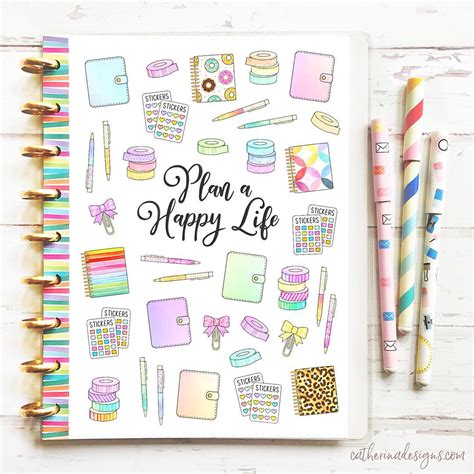 STICKERS
STICKERS
Plan a
Happy Life
STICKERS
STICKERS
STICKERS
STICKERS
STICKERS
STICKERS
catherinadesigns.com